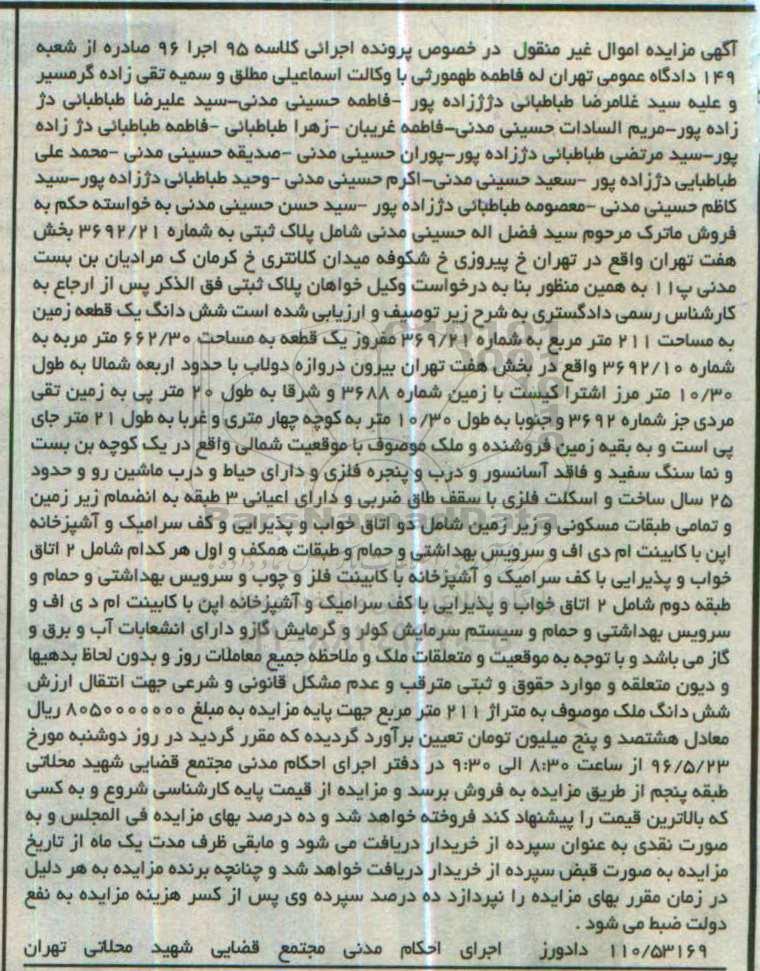 آگهی مزایده اموال غیر منقول در خصوص پرونده اجرائی کلاسه ۹۵ اجرا ۹۶ صادره از شعبه
۱۴۹ دادگاه عمومی تهران له فاطمه طهمورثی با وکالت اسماعیلی مطلق و سمیه تقی زاده گرمسیر
و علیه سید غلامرضا طباطبائی دژژزاده پور –فاطمه حسینی مدنی–سید علیرضا طباطبائی دژ
زاده پور–مریم السادات حسینی مدنی–فاطمه غریبان –زهرا طباطبائی –فاطمه طباطبائی دژ زاده
پور–سید مرتضی طباطبائی دژزاده پور–پوران حسینی مدنی –صدیقه حسینی مدنی –محمد علی
طباطبایی دژزاده پور –سعید حسینی مدنی–اکرم حسینی مدنی –وحید طباطبائی دژزاده پور–سید
کاظم حسینی مدنی –معصومه طباطبائی دژزاده پور –سید حسن حسینی مدنی به خواسته حکم به
فروش ماترک مرحوم سید فضل اله حسینی مدنی شامل پلاک ثبتی به شماره ۳۶۹۲/۲۱ بخش
هفت تهران واقع در تهران خ پیروزی خ شکوفه میدان کلانتری خ کرمان ک مرادیان بن بست
مدنی پ۱۱ به همین منظور بنا به درخواست وکیل خواهان پلاک ثبتی فق الذکر پس از ارجاع به
کارشناس رسمی دادگستری به شرح زیر توصیف و ارزیابی شده است شش دانگ یک قطعه زمین
به مساحت ۲۱۱ متر مربع به شماره ۳۶۹/۲۱ مفروز یک قطعه به مساحت ۶۶۲/۳۰ متر مربه به
شماره ۳۶۹۲/۱۰ واقع در بخش هفت تهران بیرون دروازه دولاب با حدود اربعه شمالا به طول
۱۰/۳۰ متر مرز اشترا کیست با زمین شماره ۳۶۸۸ و شرقا به طول ۲۰ متر پی به زمین تقی
مردی جز شماره ۳۶۹۲ و جنوبا به طول ۱۰/۳۰ متر به کوچه چهار متری و غربا به طول ۲۱ متر جای
پی است و به بقیه زمین فروشنده و ملک موصوف با موقعیت شمالی واقع در یک کوچه بن بست
و نما سنگ سفید و فاقد آسانسور و درب و پنجره فلزی و دارای حیاط و درب ماشین رو و حدود
۲۵ سال ساخت و اسکلت فلزی با سقف طاق ضربی و دارای اعیانی ۳ طبقه به انضمام زیر زمین
و تمامی طبقات مسکونی و زیر زمین شامل دو اتاق خواب و پذیرایی و کف سرامیک و آشپزخانه
اپن با کابینت ام دی اف و سرویس بهداشتی و حمام و طبقات همکف و اول هر کدام شامل ۲ اتاق
خواب و پذیرایی با کف سرامیک و آشپزخانه با کابینت فلز و چوب و سرویس بهداشتی و حمام و
طبقه دوم شامل ۲ اتاق خواب و پذیرایی با کف سرامیک و آشپزخانه اپن با کابینت ام د ی اف و
سرویس بهداشتی و حمام و سیستم سرمایش کولر و گرمایش گازو دارای انشعابات آب و برق و
گاز می باشد و با توجه به موقعیت و متعلقات ملک و ملاحظه جمیع معاملات روز و بدون لحاظ بدهیها
و دیون متعلقه و موارد حقوق و ثبتی مترقب و عدم مشکل قانونی و شرعی جهت انتقال ارزش
شش دانگ ملک موصوف به متراژ ۲۱۱ متر مربع جهت پایه مزایده به مبلغ ۸۰۵۰۰۰۰۰۰۰ ریال
معادل هشتصد و پنج میلیون تومان تعیین برآورد گردیده که مقرر گردید در روز دوشنبه مورخ
۹۶/۵/۲۳ از ساعت ۸:۳۰ الی ۹:۳۰ در دفتر اجرای احکام مدنی مجتمع قضایی شهید محلاتی
طبقه پنجم از طریق مزایده به فروش برسد و مزایده از قیمت پایه کارشناسی شروع و به کسی
که بالاترین قیمت را پیشنهاد کند فروخته خواهد شد و ده درصد بهای مزایده فی المجلس و به
صورت نقدی به عنوان سپرده از خریدار دریافت می شود و مابقی ظرف مدت یک ماه از تاریخ
مزایده به صورت قبض سپرده از خریدار دریافت خواهد شد و چنانچه برنده مزایده به هر دلیل
در زمان مقرر بهای مزایده را نپردازد ده درصد سپرده وی پس از کسر هزینه مزایده به نفع
دولت ضبط می شود .
۱۱۰/۵۳۱۶۹ دادورز اجرای احکام مدنی مجتمع قضایی شهید محلاتی تهران